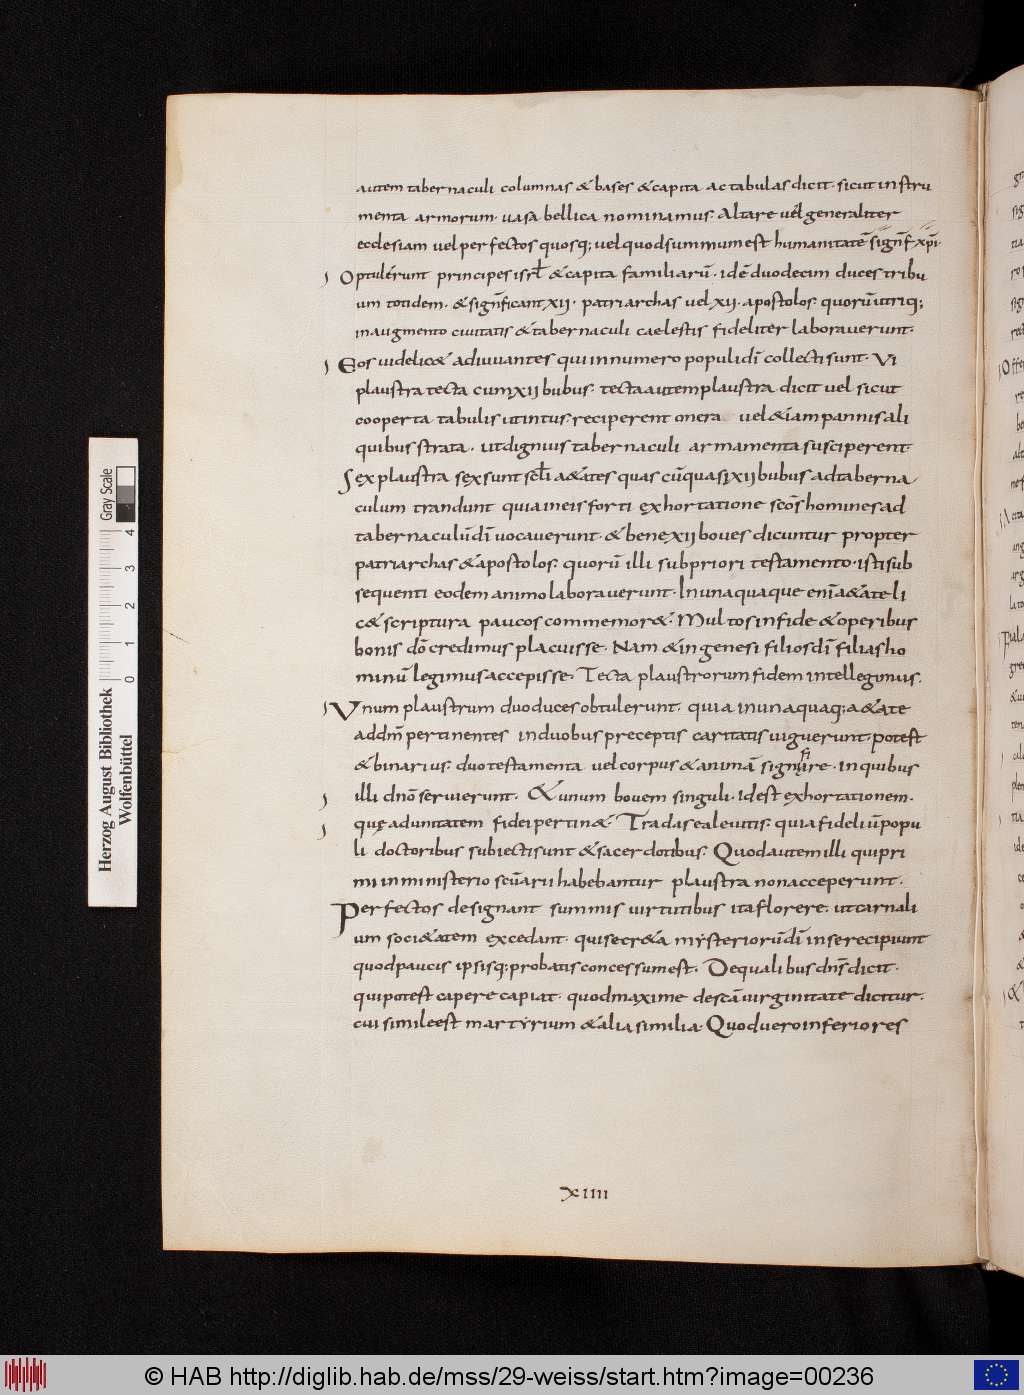 autem tabernaculi columnas & bases & capita ac tabulas dicit· sicut instru
menta armorum· uasa bellica nominamus· Altare uel generaliter
ecclesiam uel perfectos quosq; uel quod summum est humanitatē signif· xp̄i·
Optulerunt principes isrł & capita familiarū· idē duodecim duces tribu
um totidem· & significant xii· patriarchas uel xii· apostolos· quorū utriq;
in augmento ciuitatis & tabernaculi caelestis fideliter laborauerunt·
Eos uidelic& adiuuantes qui in numero populi dī collecti sunt· Vi
plaustra tecta cum xii bubus· tecta autem plaustra dicit uel sicut
cooperta tabulis ut intus reciperent onera uel &iam pannis ali
quibus strata· ut dignius tabernaculi armamenta susciperent·
Sex plaustra sex sunt scłi a&ates quas cū quasi xii bubus ad taberna
culum trandunt quia in eis forti exhortatione scōs homines ad
tabernaculū dī uocauerunt· & bene xii boues dicuntur propter
patriarchas & apostolos· quorū illi sub priori testamento· isti sub
sequenti eodem animo laborauerunt· In unaquaque enī a&ate li
c& scriptura paucos commemor&· Multos in fide & operibus
bonis dō credimus placuisse· Nam & in genesi filios dī filias ho
minū legimus accepisse· Tecta plaustrorum fidem intellegimus·
Vnum plaustrum duo duces obtulerunt· quia in unaquaq; a&ate
ad dn̄m pertinentes in duobus preceptis caritatis uiguerunt· potest
& binarius· duo testamenta uel corpus & animā signare· in quibus
illi dn̄o seruierunt· & unum bouem singuli· id est exhortationem·
quę ad unitatem fidei pertin&· Tradas ea leuitis· quia fideliū popu
li doctoribus subiecti sunt & sacerdotibus· Quod autem illi qui pri
mi in ministerio scūarii habebantur plaustra non acceperunt·
Perfectos designant summis uirtutibus ita florere· ut carnali
um soci&atem excedant· qui secr&a mysteriorū dī in se recipiunt
quod paucis ipsisq; probatis concessum est· De qualibus dn̄s dicit·
qui potest capere capiat· quod maxime de scā uirginitate dicitur·
cui simile est martyrium & alia similia· Quod uero inferiores
xiiii
Herzog August Bibliothek
Wolfenbüttel
0 1 2 3 4
Gray Scale
© HAB http://diglib.hab.de/mss/29-weiss/start.htm?image=00236